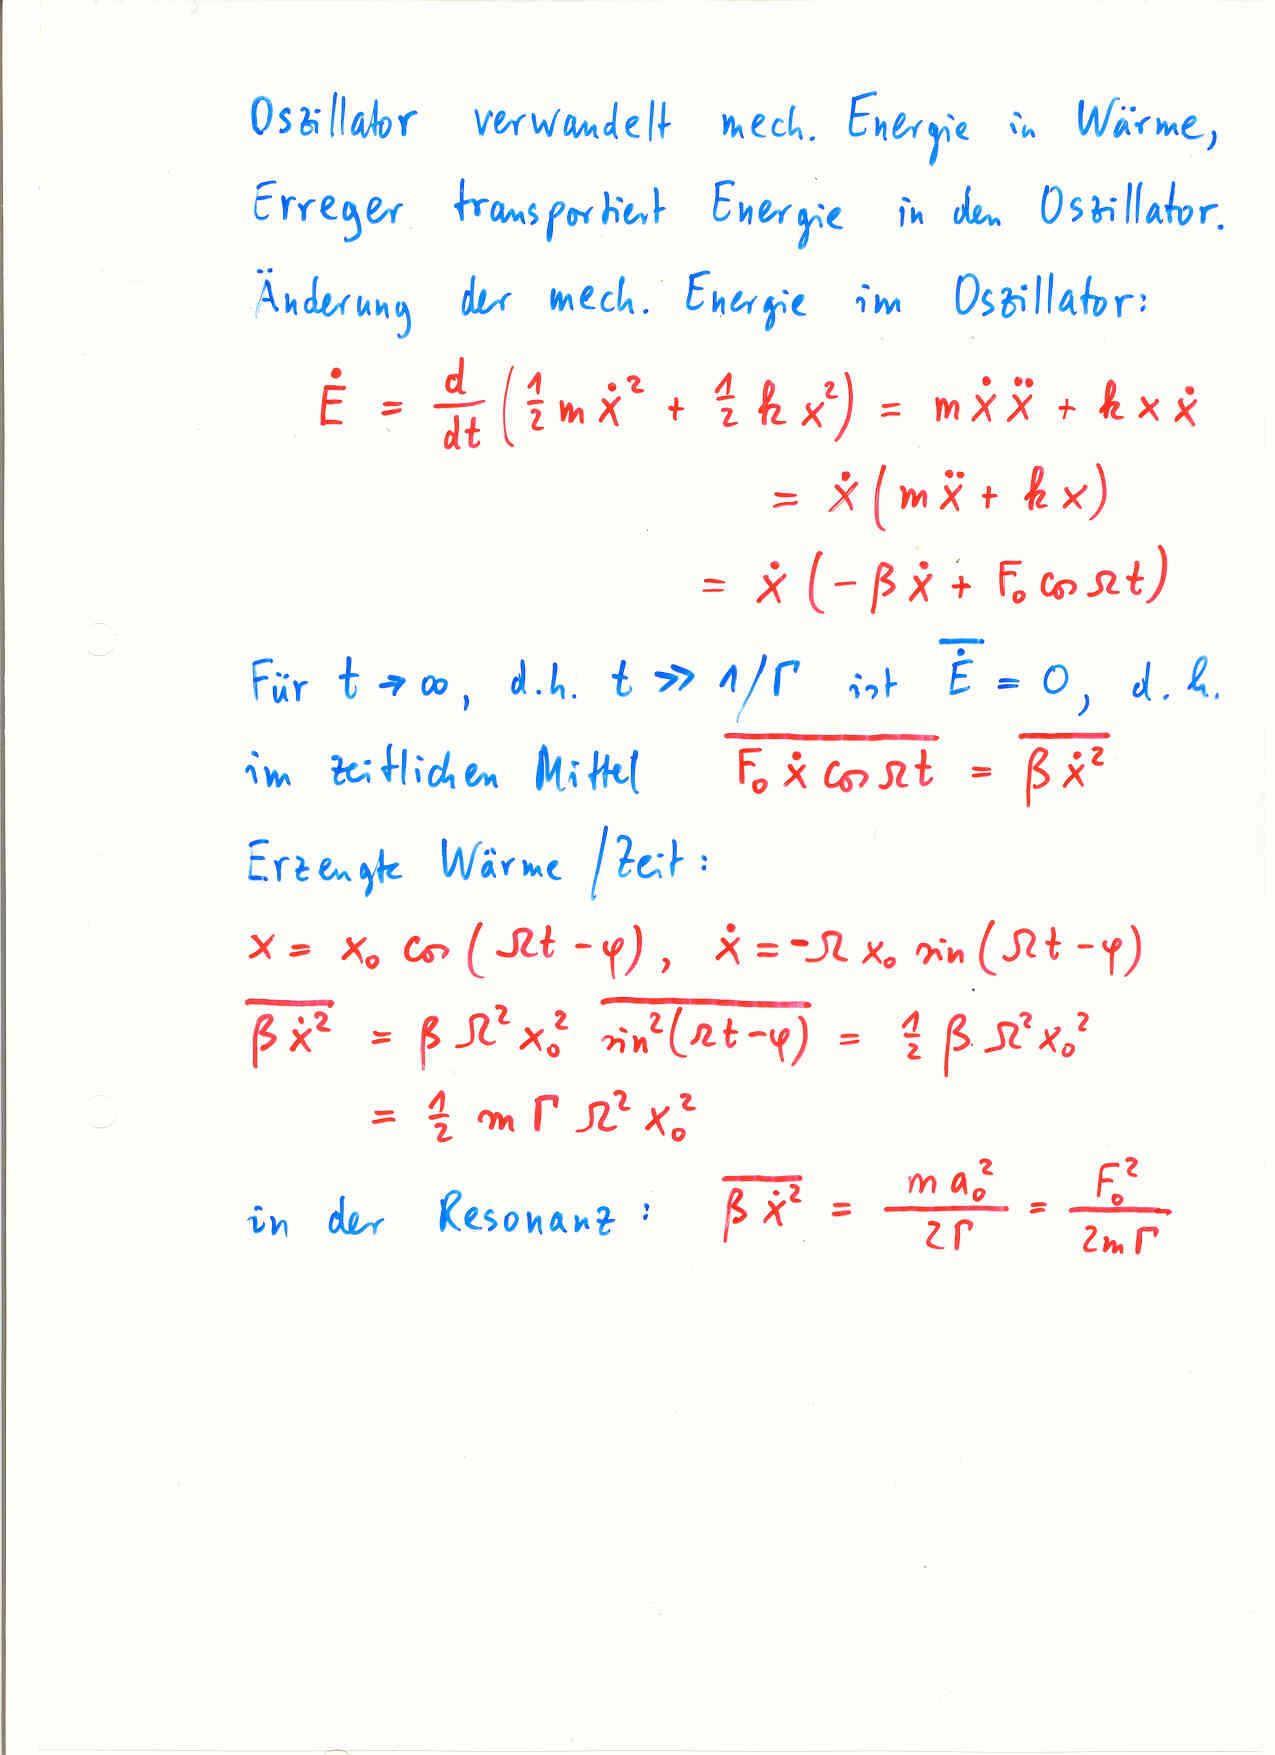 Oszillator verwandelt mech. Energie in Wärme,
Erreger transportiert Energie in den Oszillator.
Änderung der mech. Energie im Oszillator:
Ė = d/dt (½ m ẋ² + ½ k x²) = m ẋ ẍ + k x ẋ
= ẋ (m ẍ + k x)
= ẋ (−β ẋ + F₀ cos Ωt)
Für t → ∞, d.h. t ≫ 1/Γ ist \overline{Ė} = 0, d.h.
im zeitlichen Mittel \overline{F₀ ẋ cos Ωt} = \overline{β ẋ²}
Erzeugte Wärme / Zeit:
x = x₀ cos (Ωt − φ), ẋ = −Ω x₀ sin (Ωt − φ)
\overline{β ẋ²} = β Ω² x₀² \overline{sin² (Ωt − φ)} = ½ β Ω² x₀²
= ½ m Γ Ω² x₀²
in der Resonanz: \overline{β ẋ²} = m a₀² / 2Γ = F₀² / 2mΓ